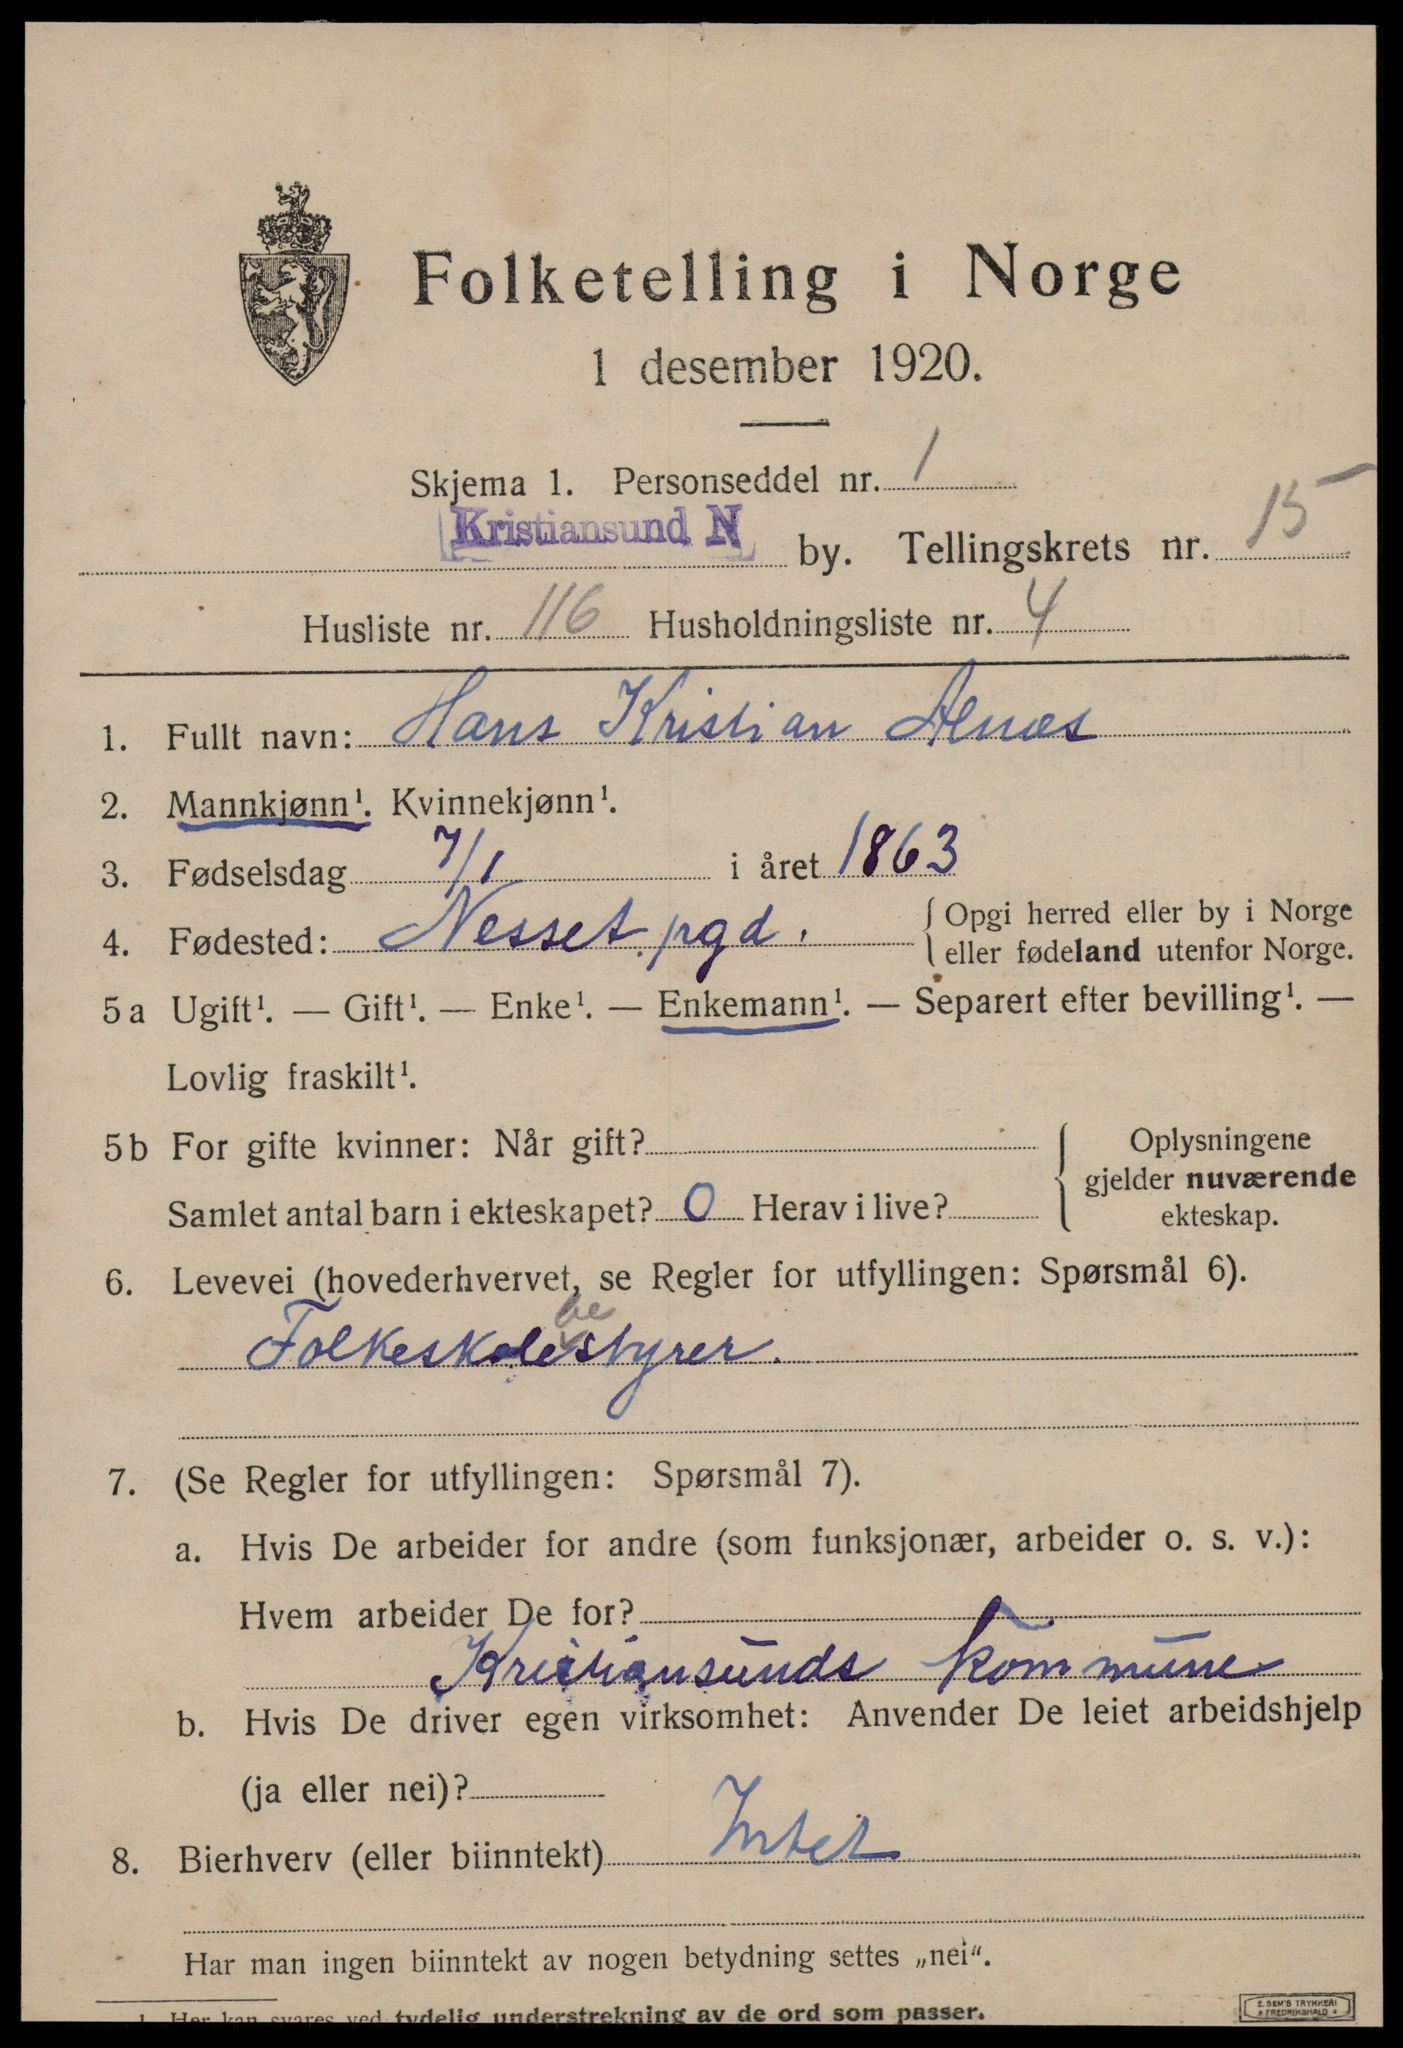 Folketelling i Norge
1 desember 1920.
Skjema 1. Personseddel nr. 1
Kristiansund N by. Tellingskrets nr. 15
Husliste nr. 116 Husholdningsliste nr. 4
1. Fullt navn: Hans Kristian Alnæs
2. Mannkjønn¹. Kvinnekjønn¹.
3. Fødselsdag 7/1 i året 1863
4. Fødested: Nesset pgd. { Opgi herred eller by i Norge
eller fødeland utenfor Norge.
5a Ugift¹. — Gift¹. — Enke¹. — Enkemann¹. — Separert efter bevilling¹. —
Lovlig fraskilt¹.
5b For gifte kvinner: Når gift?
Samlet antal barn i ekteskapet? 0 Herav i live?
{ Oplysningene
gjelder nuværende
ekteskap.
6. Levevei (hovederhvervet, se Regler for utfyllingen: Spørsmål 6).
be
Folkeskolestyrer.
7. (Se Regler for utfyllingen: Spørsmål 7).
a. Hvis De arbeider for andre (som funksjonær, arbeider o. s. v.):
Hvem arbeider De for?
Kristiansunds kommune
b. Hvis De driver egen virksomhet: Anvender De leiet arbeidshjelp
(ja eller nei)?
8. Bierhverv (eller biinntekt) Intet
Har man ingen biinntekt av nogen betydning settes „nei“.
1. Her kan svares ved tydelig understrekning av de ord som passer.
E. SEM'S TRYKKERI
FREDRIKSHALD